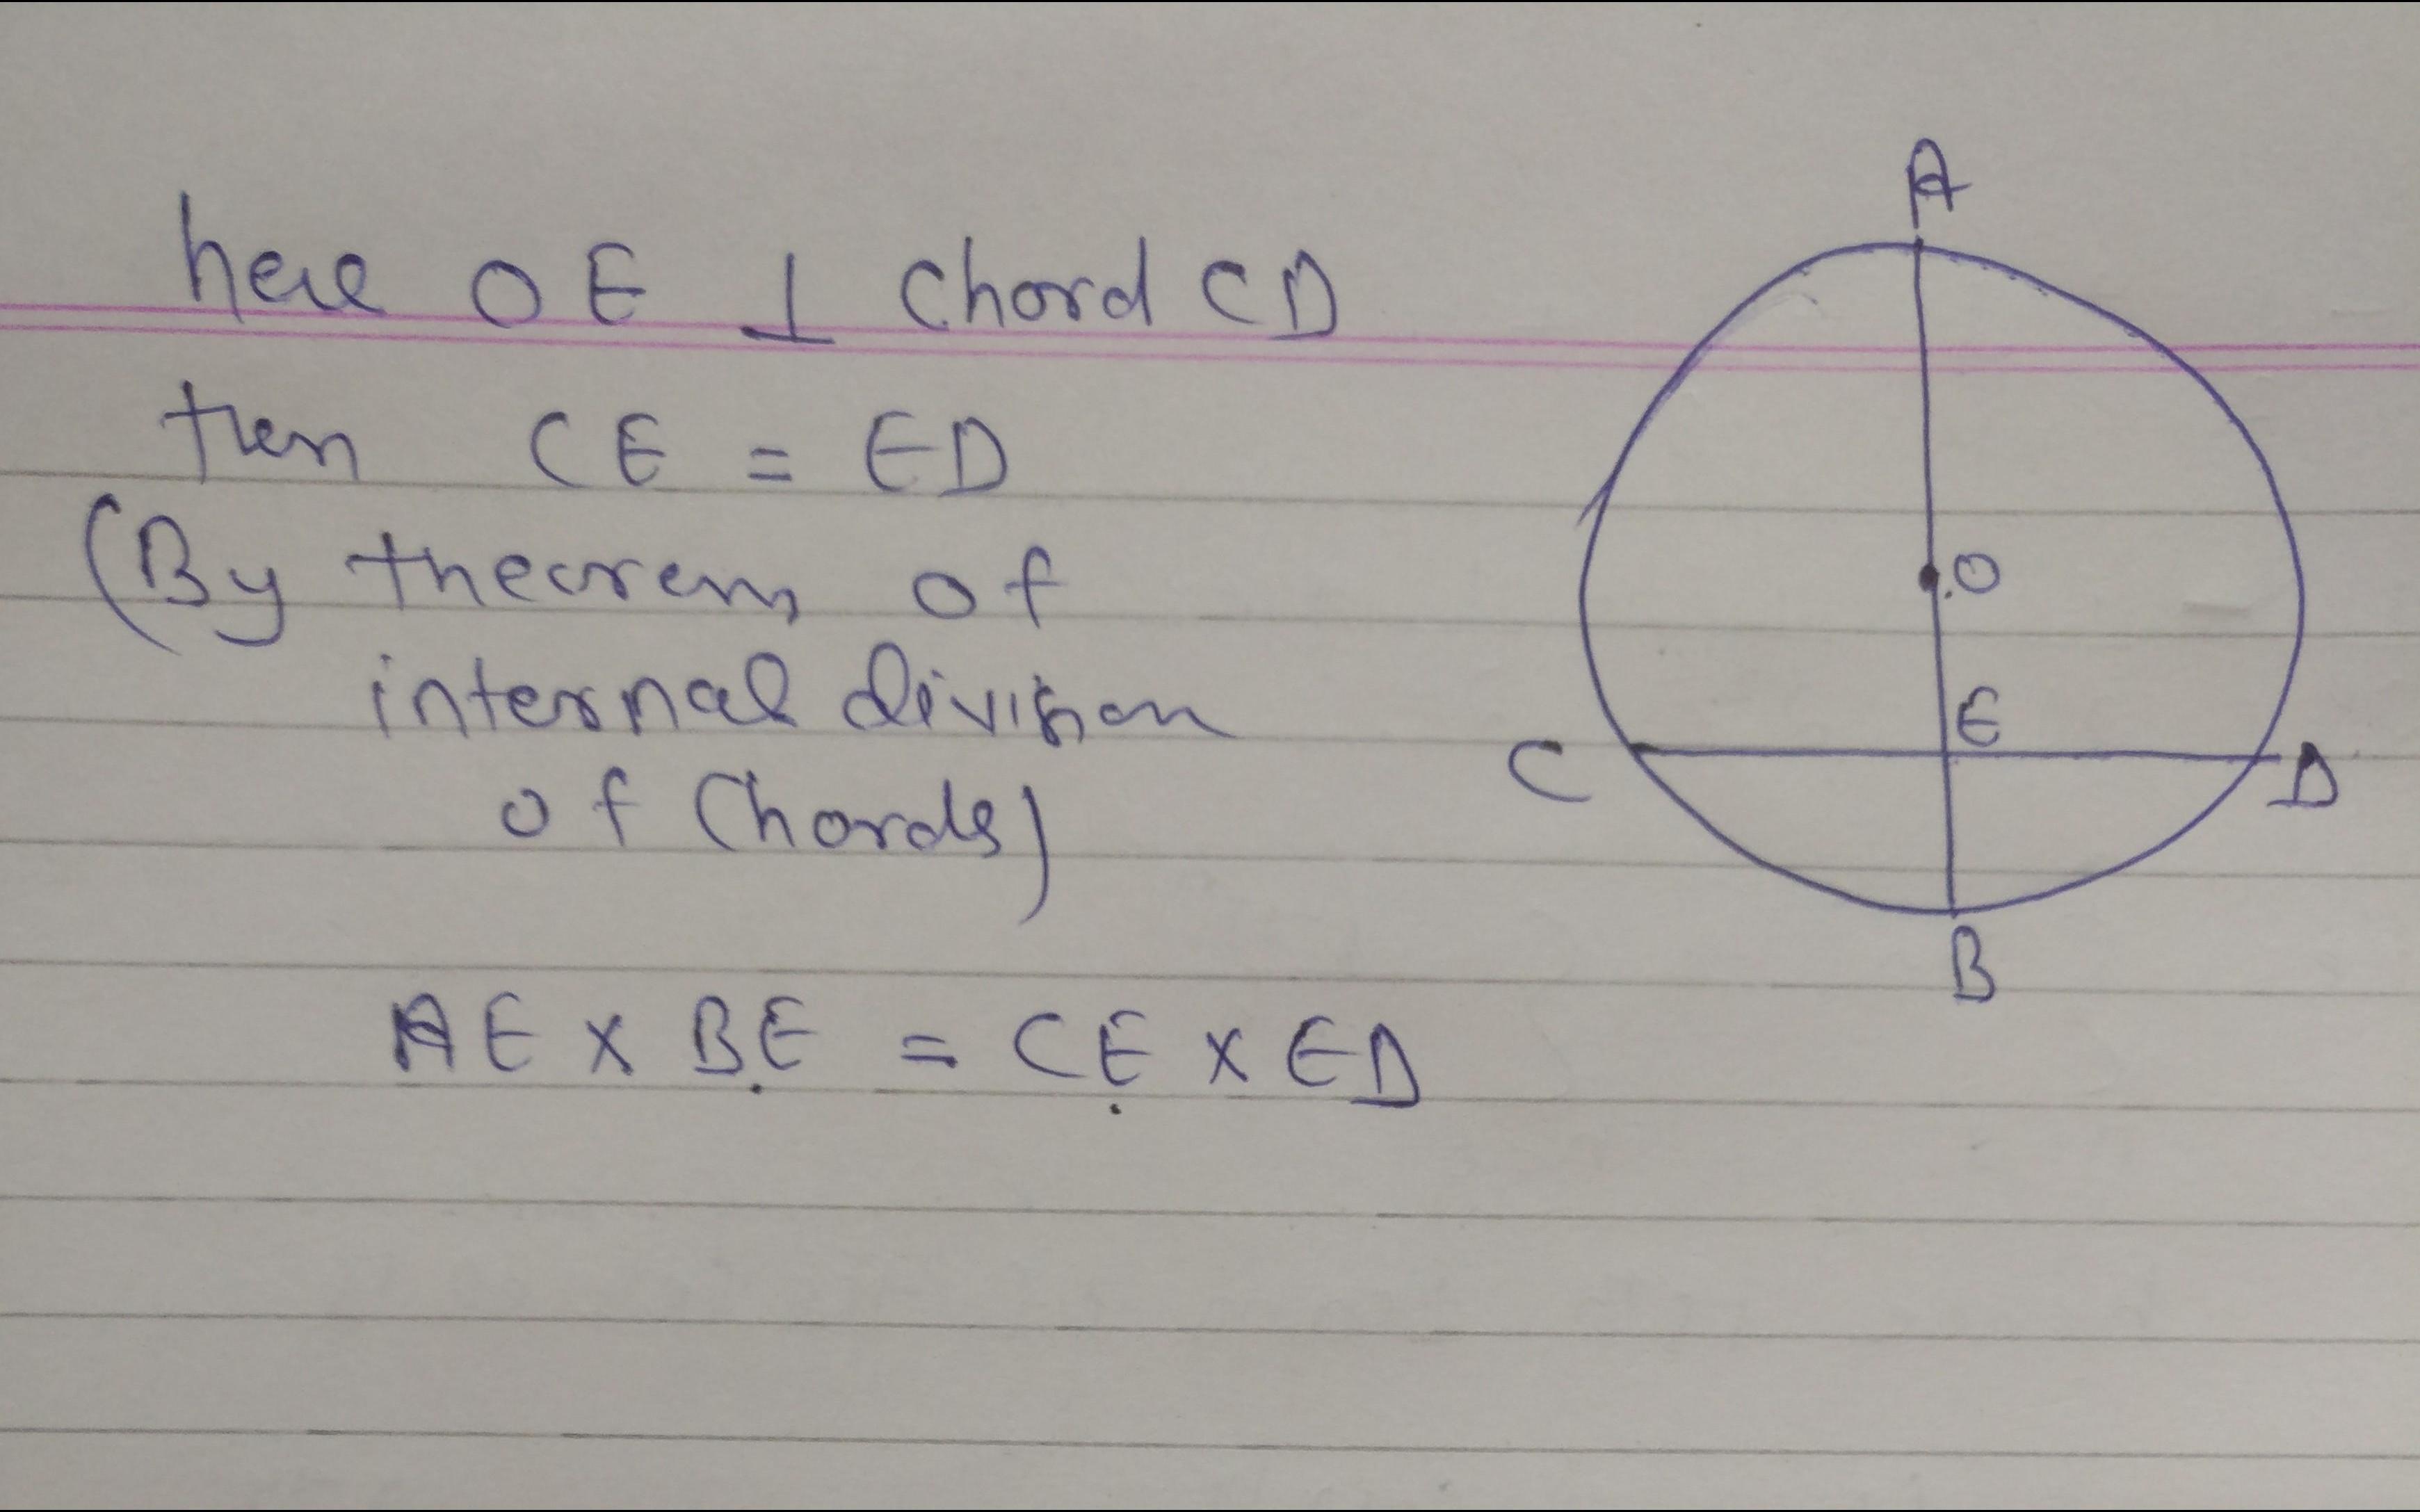 here OE ⊥ chord CD
then CE = ED
(By theorem of
internal division
of Chords)
AE × BE = CE × ED
A
O
E
C
D
B